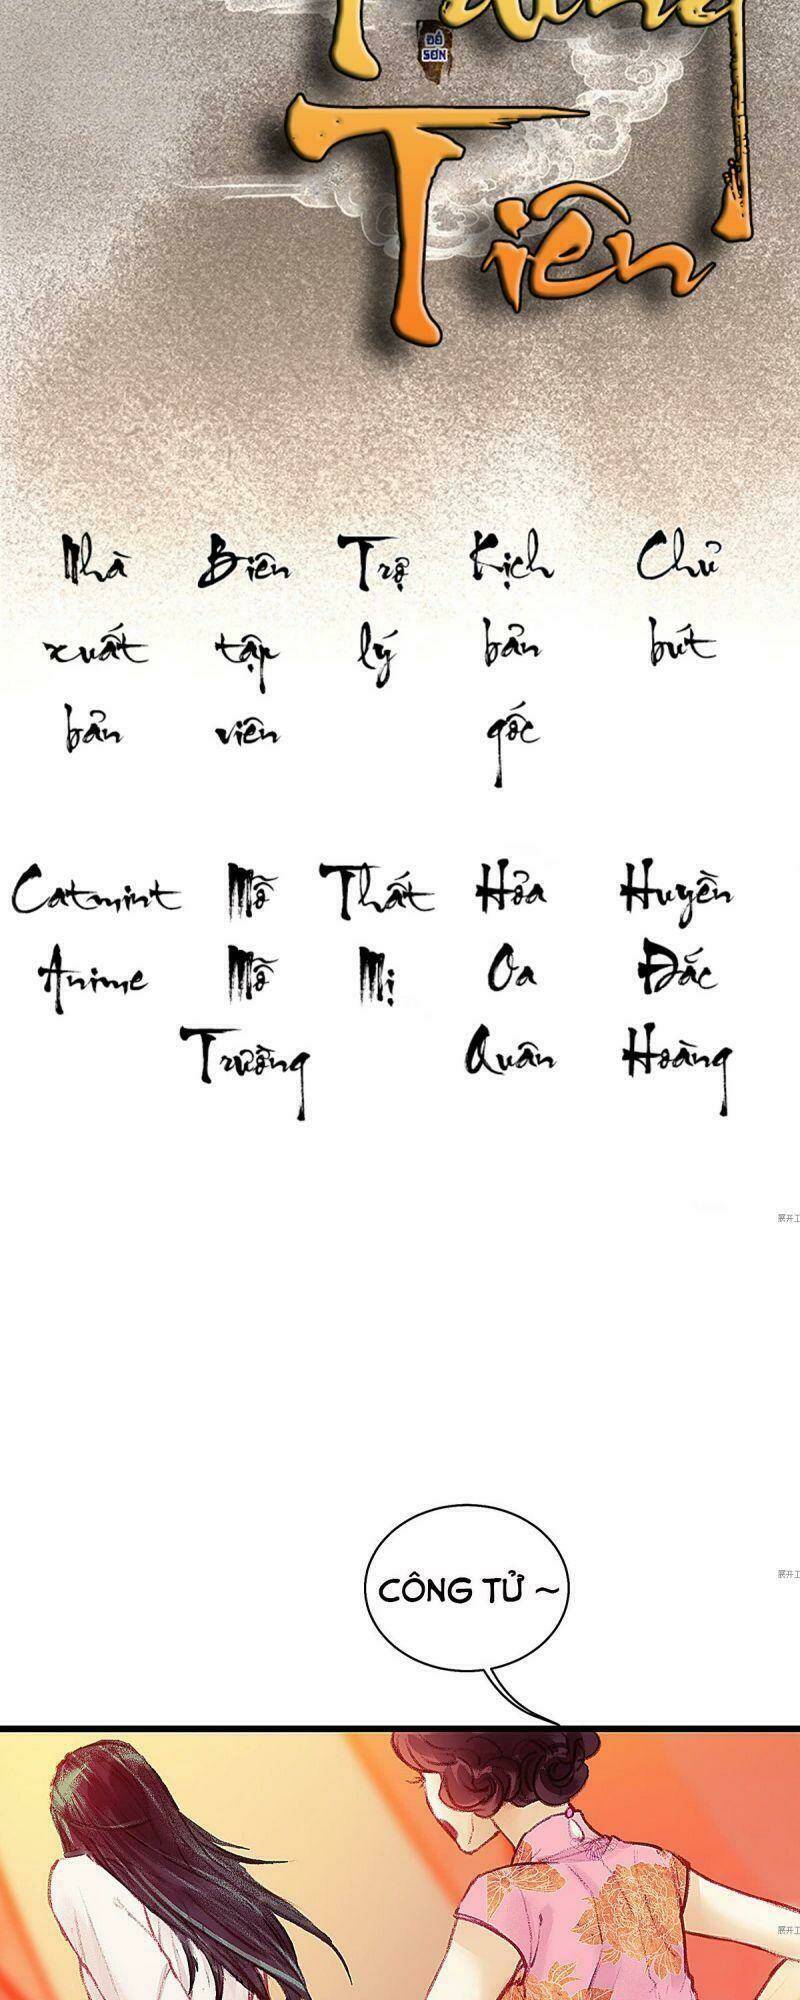 ĐẾ
SƠN
Tiên
Nhà Biên Trợ Kịch Chủ
xuất tập lý bản bút
bản viên gốc
Catmint Mỗ Thất Hỏa Huyền
Anime Mỗ Mị Oa Đắc
Trường Quân Hoàng
CÔNG TỬ ~